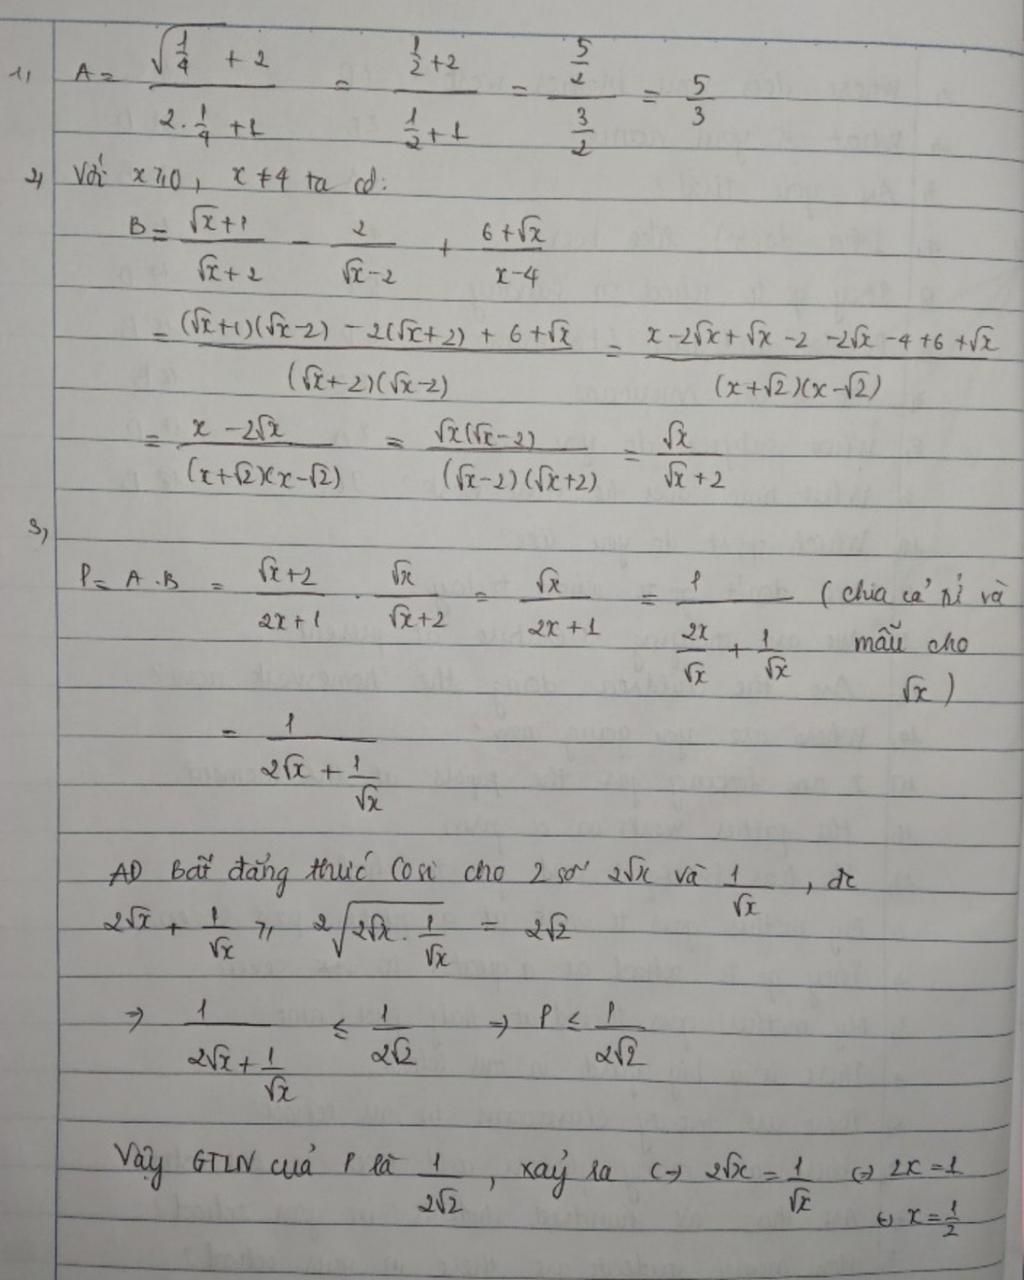 1, A = \frac{\sqrt{\frac{1}{4}} + 2}{2.\frac{1}{4} + 1} = \frac{\frac{1}{2} + 2}{\frac{1}{2} + 1} = \frac{\frac{5}{2}}{\frac{3}{2}} = \frac{5}{3}
2, Với x ≥ 0, x ≠ 4 ta có:
B = \frac{√x + 1}{√x + 2} - \frac{2}{√x - 2} + \frac{6 + √x}{x - 4}
= \frac{(√x + 1)(√x - 2) - 2(√x + 2) + 6 + √x}{(√x + 2)(√x - 2)} = \frac{x - 2√x + √x - 2 - 2√x - 4 + 6 + √x}{(x + √2)(x - √2)}
= \frac{x - 2√x}{(x + √2)(x - √2)} = \frac{√x(√x - 2)}{(√x - 2)(√x + 2)} = \frac{√x}{√x + 2}
3,
P = A.B = \frac{√x + 2}{2x + 1} . \frac{√x}{√x + 2} = \frac{√x}{2x + 1} = \frac{1}{\frac{2x}{√x} + \frac{1}{√x}} (chia cả tử và
mẫu cho
√x)
= \frac{1}{2√x + \frac{1}{√x}}
AD Bất đẳng thức Cosi cho 2 số 2√x và \frac{1}{√x}, đc
2√x + \frac{1}{√x} ≥ 2\sqrt{2√x . \frac{1}{√x}} = 2√2
⇒ \frac{1}{2√x + \frac{1}{√x}} ≤ \frac{1}{2√2} ⇒ P ≤ \frac{1}{2√2}
Vậy GTLN của P là \frac{1}{2√2}, xảy ra ⇔ 2√x = \frac{1}{√x} ⇔ 2x = 1
⇔ x = \frac{1}{2}